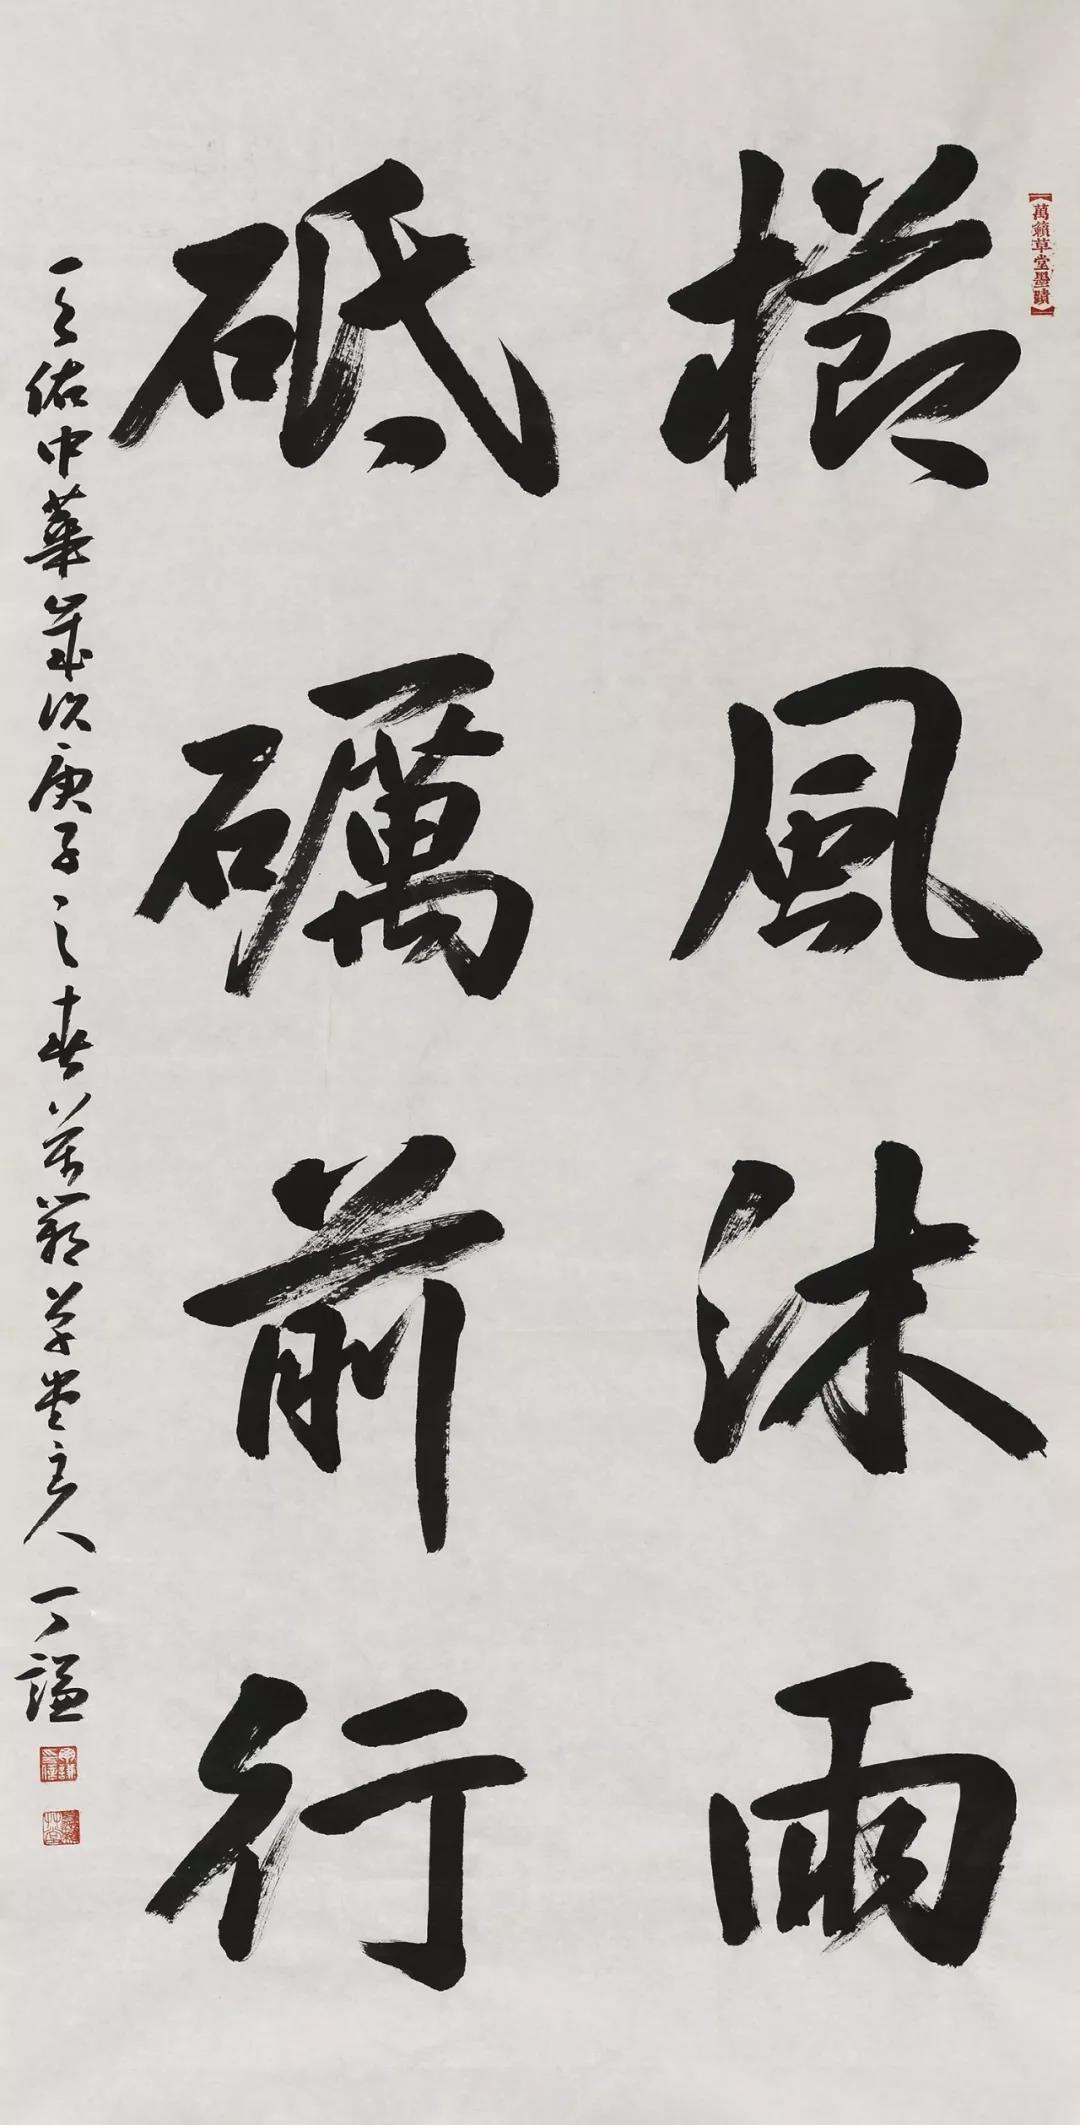 萬籟草堂墨蹟
櫛風沐雨
砥礪前行
天佑中華歲次庚子之春萬籟草堂主人丁謙